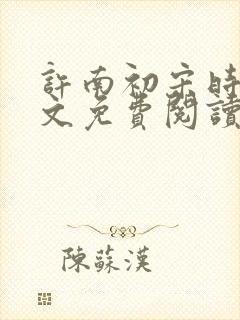 許南初宋時
文免費閱讀
陳蘇漢